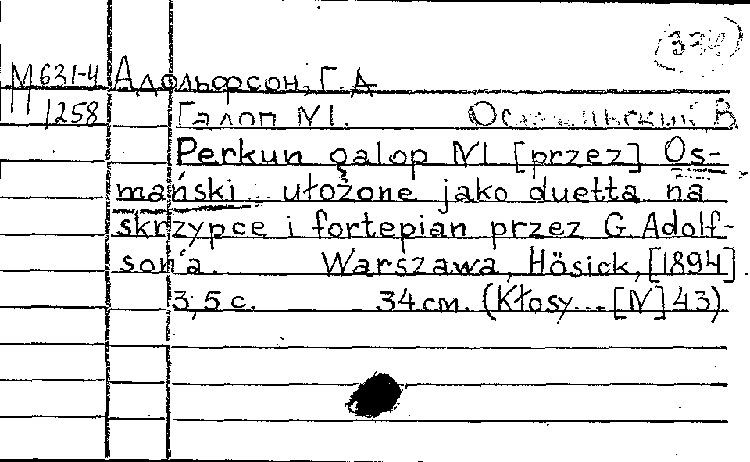 (374)
М 631-4 Адольфсон, Г. А
1258 Галоп N1. В
Perkun galop N1 [przez] Os-
mański ułożone jako duetta na
skrzypce i fortepian przez G. Adolf-
son'a. Warszawa, Hösick, [1894].
3; 5 с. 34 см. (Kłosy... [N] 43)